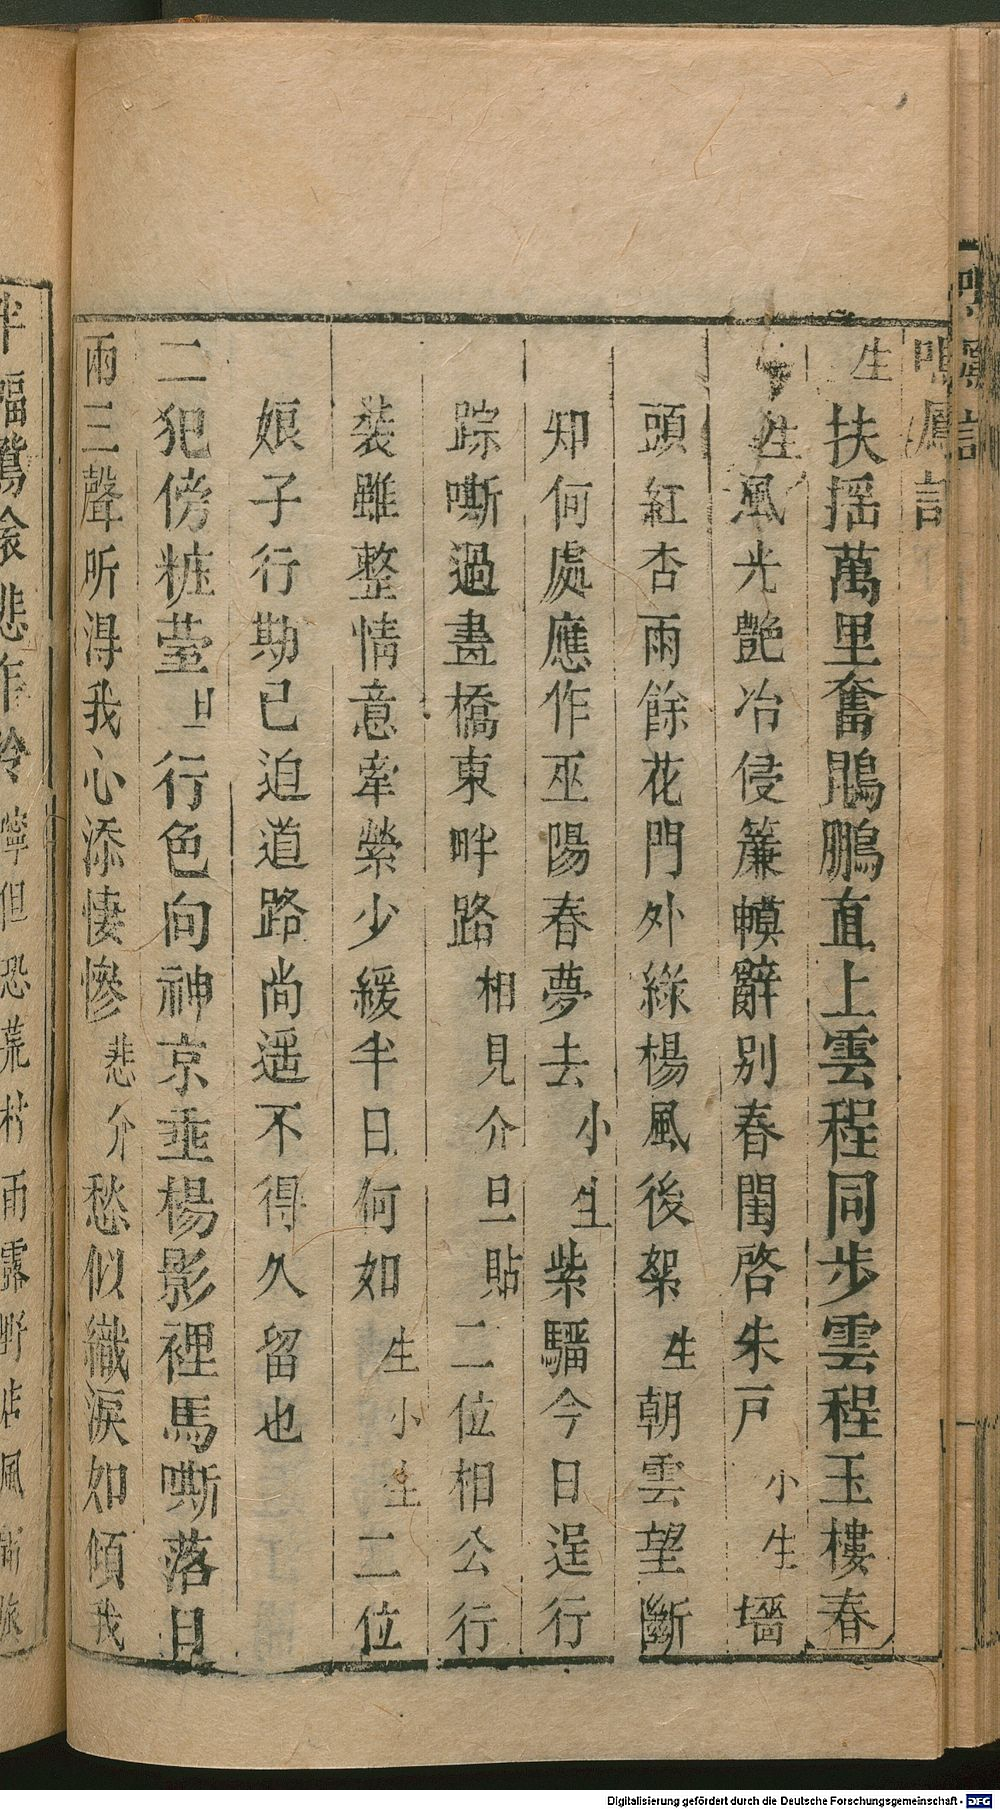 鳴鳳記
生扶摇萬里奮鵾鵬直上雲程同步雲程玉樓春
生風光艷冶侵簾幙辭别春閨啓朱戸小生墻
頭紅杏雨餘花門外綠楊風後絮生朝雲望斷
知何處應作巫陽春夢去小生紫騮今日逞行
踪嘶過畫橋東畔路相見介旦貼二位相公行
裝雖整情意牽縈少緩半日何如生小生二位
娘子行勤已迫道路尚遥不得久留也
二犯傍粧臺旦行色向神京垂楊影裡馬嘶落日
兩三聲听得我心添悽慘悲介愁似織淚如傾我
半幅鴛衾悲作冷
寧但恐荒村雨露野店風
Digitalisierung gefördert durch die Deutsche Forschungsgemeinschaft - DFG